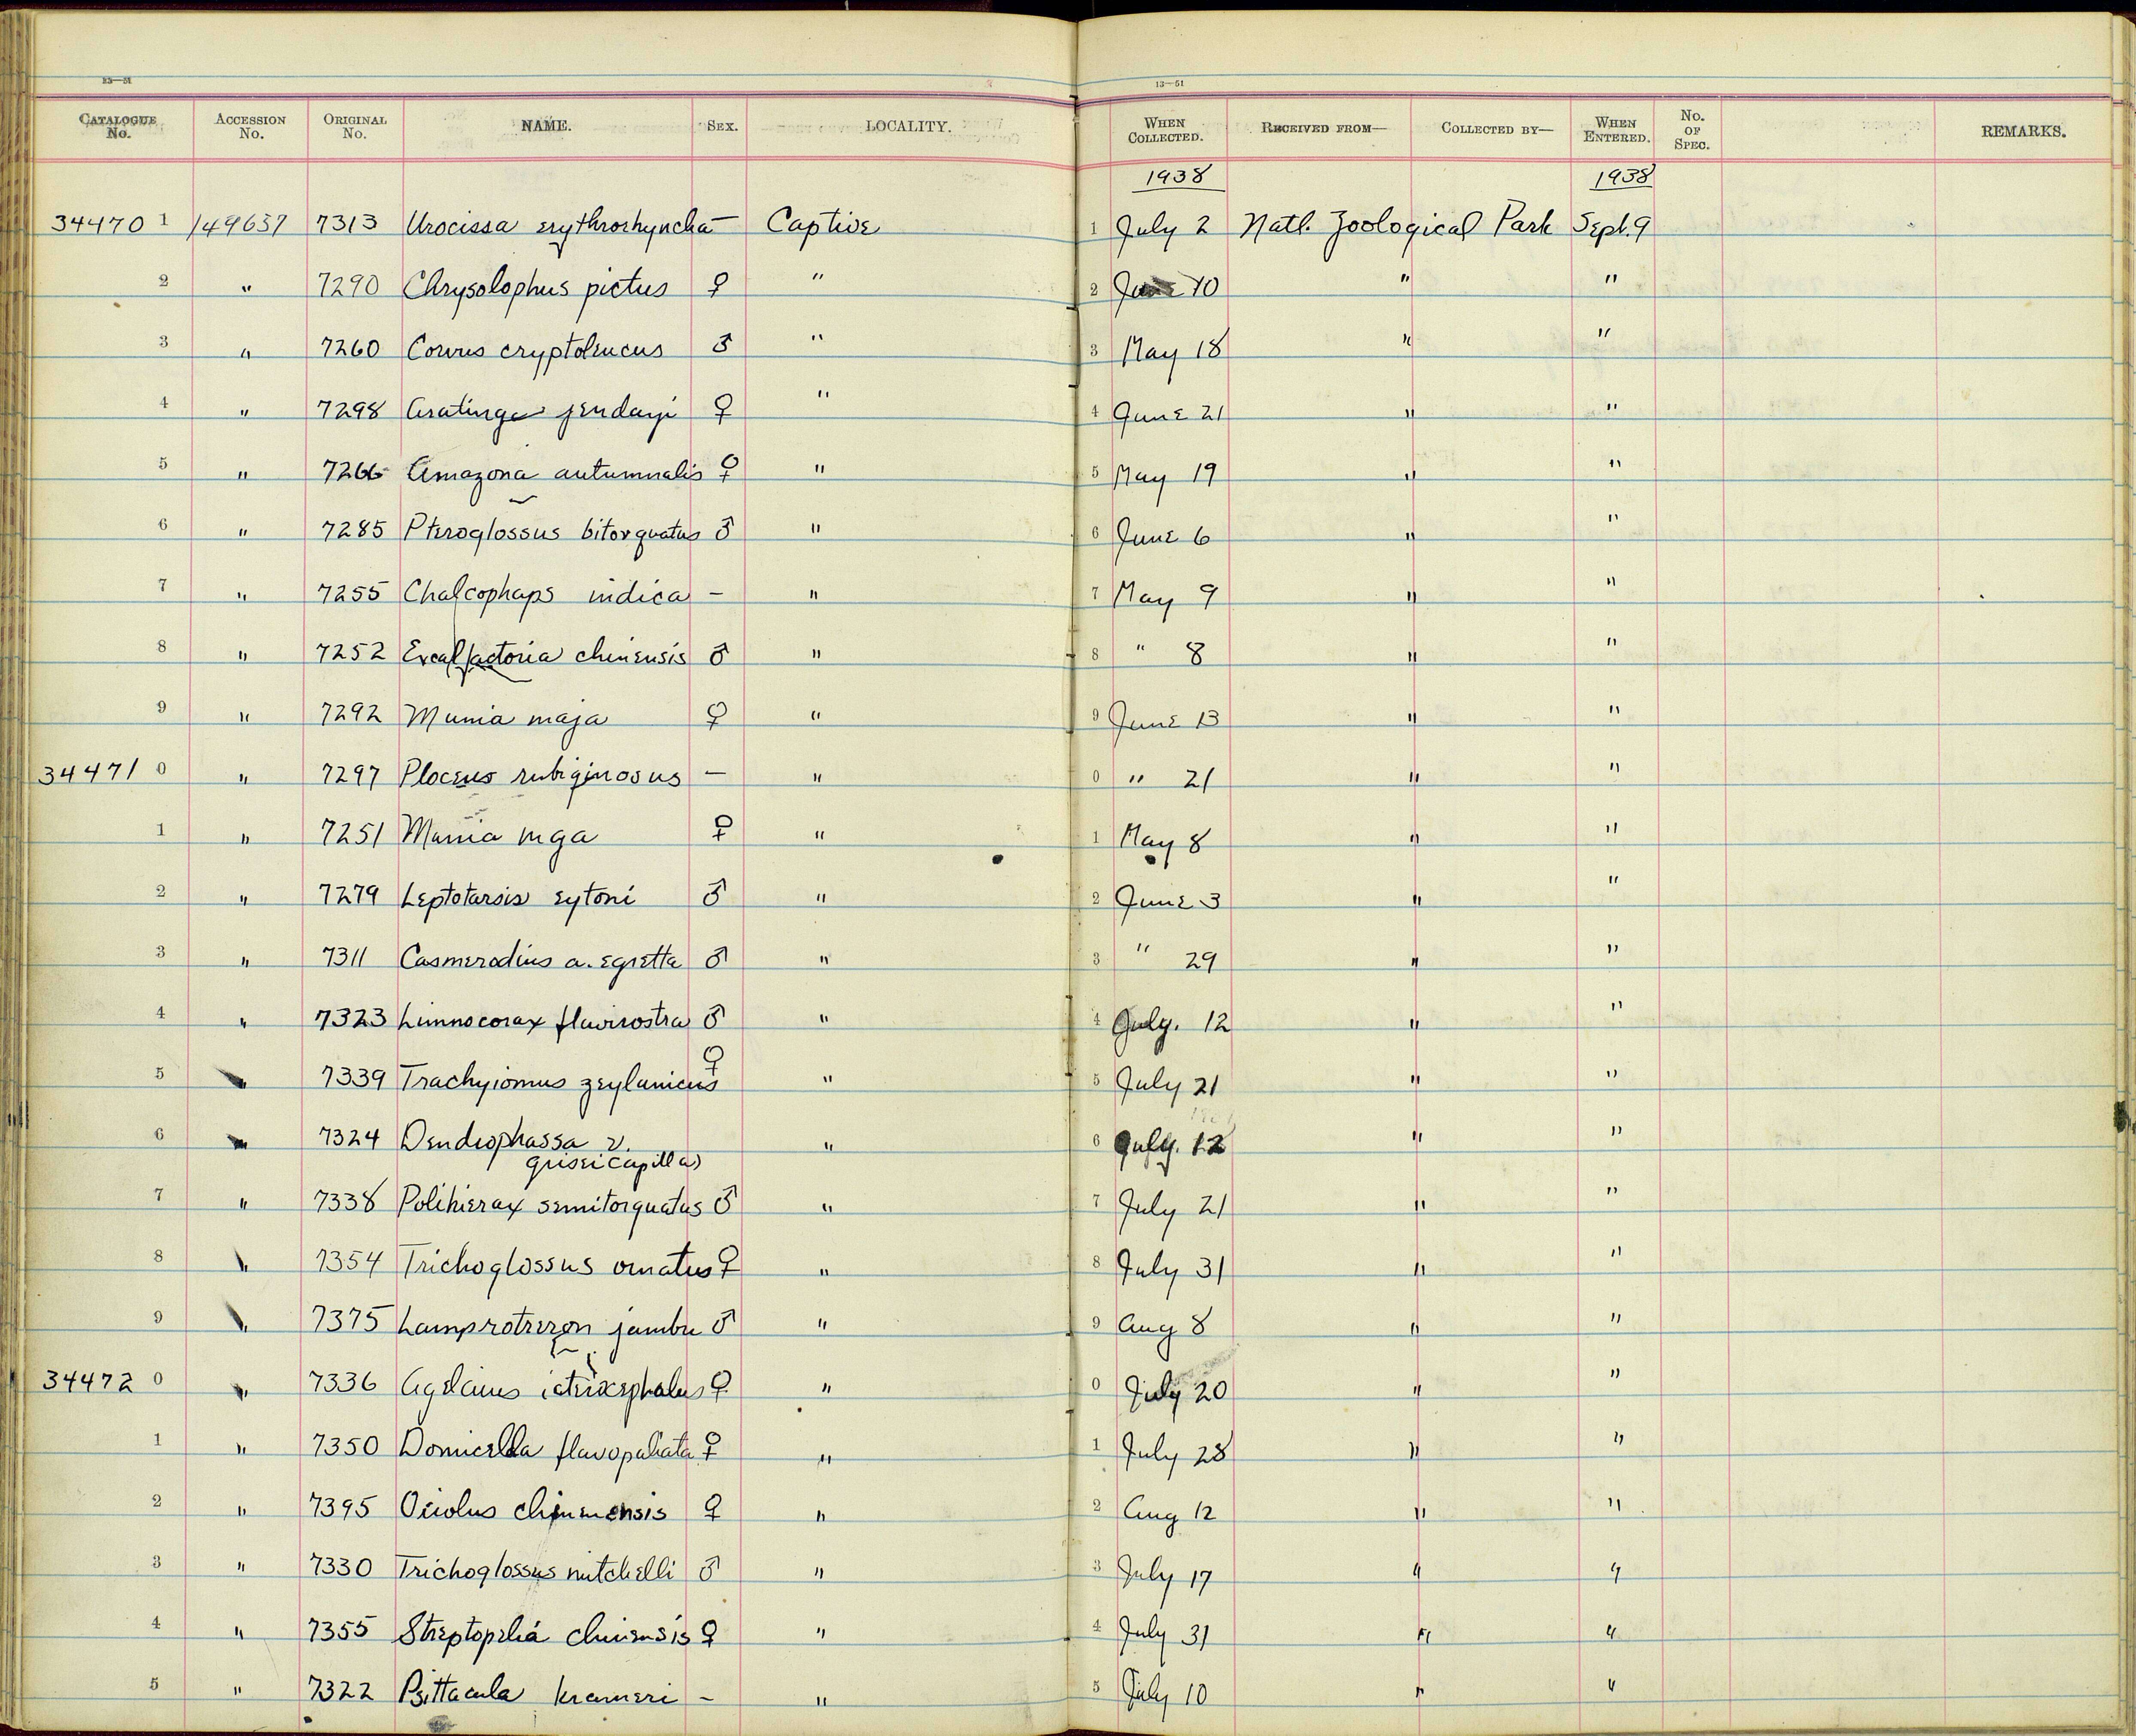 23—51 13—51
CATALOGUE No. ACCESSION No. ORIGINAL No. NAME. SEX. LOCALITY. WHEN COLLECTED. RECEIVED FROM— COLLECTED BY— WHEN ENTERED. No. OF SPEC. REMARKS.
1938 1938
34470 1 149637 7313 Urocissa erythrorhyncha — Captive 1 July 2 Natl. Zoological Park Sept. 9
2 " 7290 Chrysolophus pictus ♀ " 2 June 10 " "
3 " 7260 Corvus cryptoleucus ♂ " 3 May 18 " "
4 " 7298 Aratinga jendayi ♀ " 4 June 21 " "
5 " 7266 Amazona autumnalis ♀ " 5 May 19 " "
6 " 7285 Pteroglossus bitorquatus ♂ " 6 June 6 " "
7 " 7255 Chalcophaps indica — " 7 May 9 " "
8 " 7252 Excalfactoria chinensis ♂ " 8 " 8 " "
9 " 7292 Munia maja ♀ " 9 June 13 " "
34471 0 " 7297 Ploceus rubiginosus — " 0 " 21 " "
1 " 7251 Munia maja ♀ " 1 May 8 " "
2 " 7279 Leptotarsis eytoni ♂ " 2 June 3 " "
3 " 7311 Casmerodius a. egretta ♂ " 3 " 29 " "
4 " 7323 Limnocorax flavirostra ♂ " 4 July. 12 " "
5 " 7339 Trachyiomus zeylanicus ♀ " 5 July 21 " "
6 " 7324 Dendrophassa v. " 6 July. 12 " "
griseicapilla
7 " 7338 Polihierax semitorquatus ♂ " 7 July 21 " "
8 " 7354 Trichoglossus ornatus ♀ " 8 July 31 " "
9 " 7375 Lamprotreron jambu ♂ " 9 Aug 8 " "
34472 0 " 7336 Agelaius icterocephalus ♀ " 0 July 20 " "
1 " 7350 Domicella flavopaliata ♀ " 1 July 28 " "
2 " 7395 Oriolus chinensis ♀ " 2 Aug 12 " "
3 " 7330 Trichoglossus mitchelli ♂ " 3 July 17 " "
4 " 7355 Streptopelia chinensis ♀ " 4 July 31 " "
5 " 7322 Psittacula krameri — " 5 July 10 " "